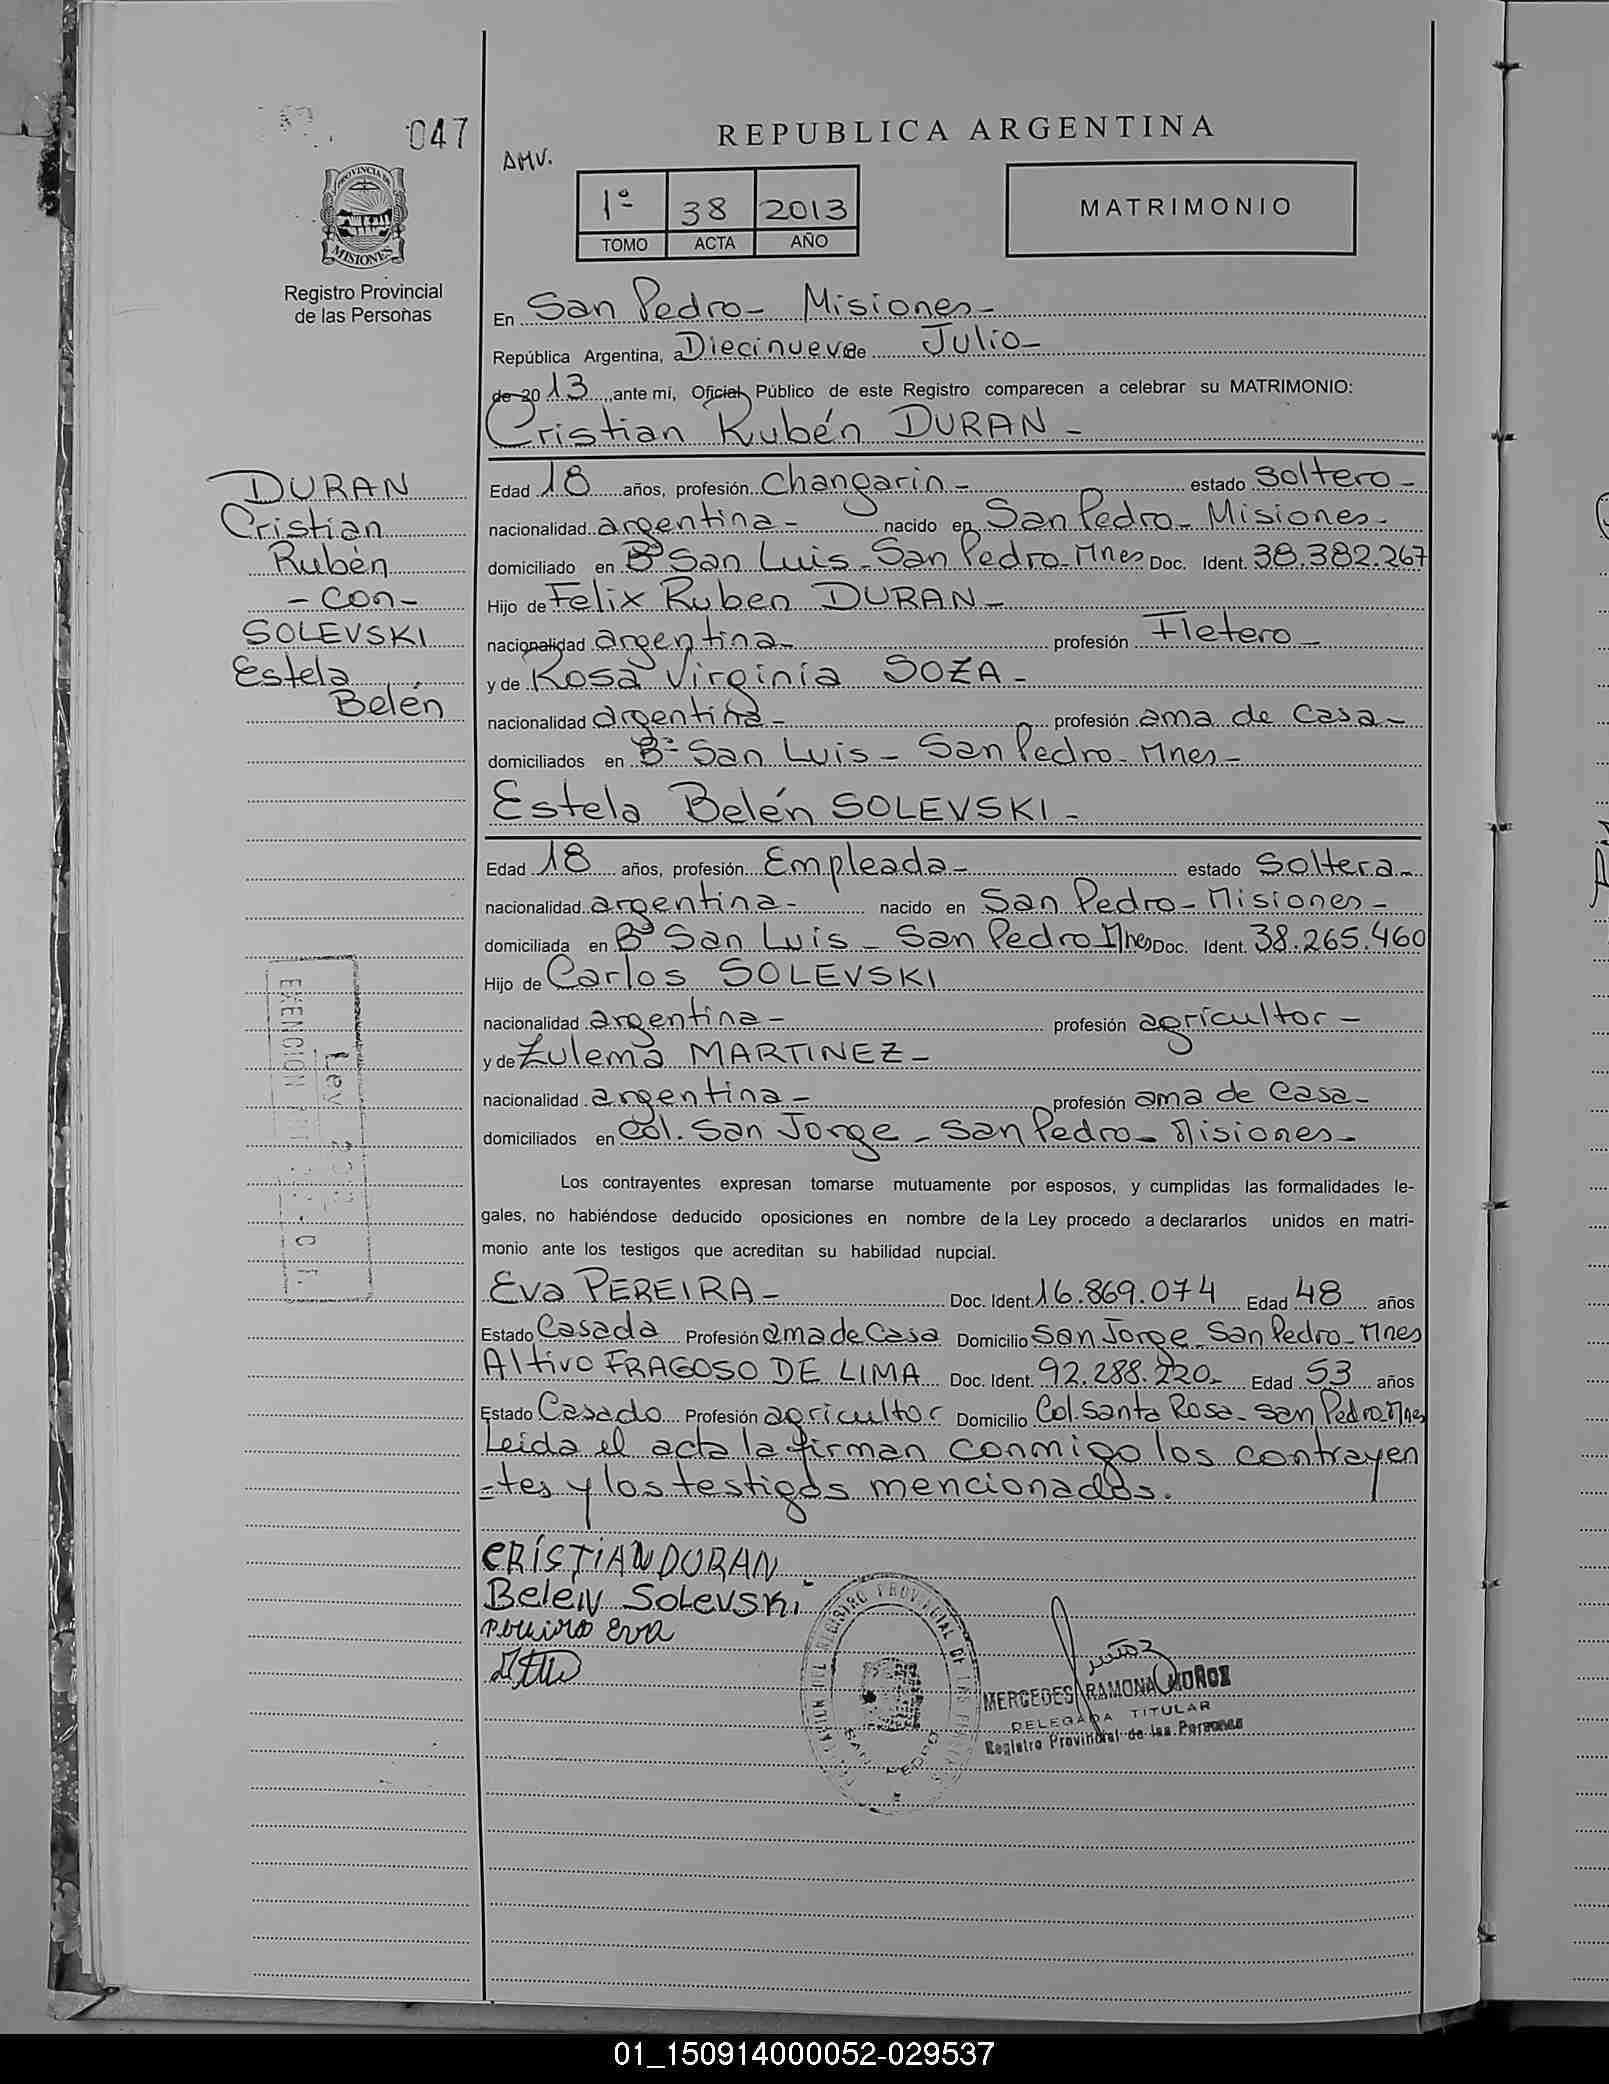 047
REPUBLICA ARGENTINA
AMV.
1º 38 2013
TOMO ACTA AÑO
MATRIMONIO
PROVINCIA DE
MISIONES
Registro Provincial
de las Personas
En San Pedro - Misiones -
República Argentina, a Diecinueve de Julio -
de 20 13 ante mí, Oficial Público de este Registro comparecen a celebrar su MATRIMONIO:
Cristian Rubén DURAN -
DURAN
Cristian
Rubén
- con -
SOLEVSKI
Estela
Belén
Edad 18 años, profesión Changarin - estado soltero -
nacionalidad argentina - nacido en San Pedro - Misiones -
domiciliado en Bº San Luis - San Pedro - Mnes Doc. Ident. 38.382.267
Hijo de Felix Ruben DURAN -
nacionalidad argentina - profesión Fletero -
y de Rosa Virginia SOZA -
nacionalidad argentina - profesión ama de casa -
domiciliados en Bº San Luis - San Pedro - Mnes -
Estela Belén SOLEVSKI -
Edad 18 años, profesión Empleada - estado soltera -
nacionalidad argentina - nacido en San Pedro - Misiones -
domiciliada en Bº San Luis - San Pedro Mnes Doc. Ident. 38.265.460
Hijo de Carlos SOLEVSKI
nacionalidad argentina - profesión agricultor -
y de Zulema MARTINEZ -
nacionalidad argentina - profesión ama de casa -
domiciliados en Col. San Jorge - San Pedro - Misiones -
EXENCION
Ley
Los contrayentes expresan tomarse mutuamente por esposos, y cumplidas las formalidades le-
gales, no habiéndose deducido oposiciones en nombre de la Ley procedo a declararlos unidos en matri-
monio ante los testigos que acreditan su habilidad nupcial.
Eva PEREIRA - Doc. Ident. 16.869.074 Edad 48 años
Estado Casada Profesión ama de casa Domicilio San Jorge - San Pedro - Mnes
Altivo FRAGOSO DE LIMA Doc. Ident. 92.288.220 - Edad 53 años
Estado Casado Profesión agricultor Domicilio Col. Santa Rosa - San Pedro - Mnes
Leida el acta la firman conmigo los contrayen
-tes y los testigos mencionados.
CRISTIAN DURAN
Belen Solevski
Pereira Eva
Muñoz
MERCEDES RAMONA MUÑOZ
DELEGADA TITULAR
Registro Provincial de las Personas
REGISTRO PROVINCIAL DE LAS PERSONAS
SAN PEDRO
01_150914000052-029537